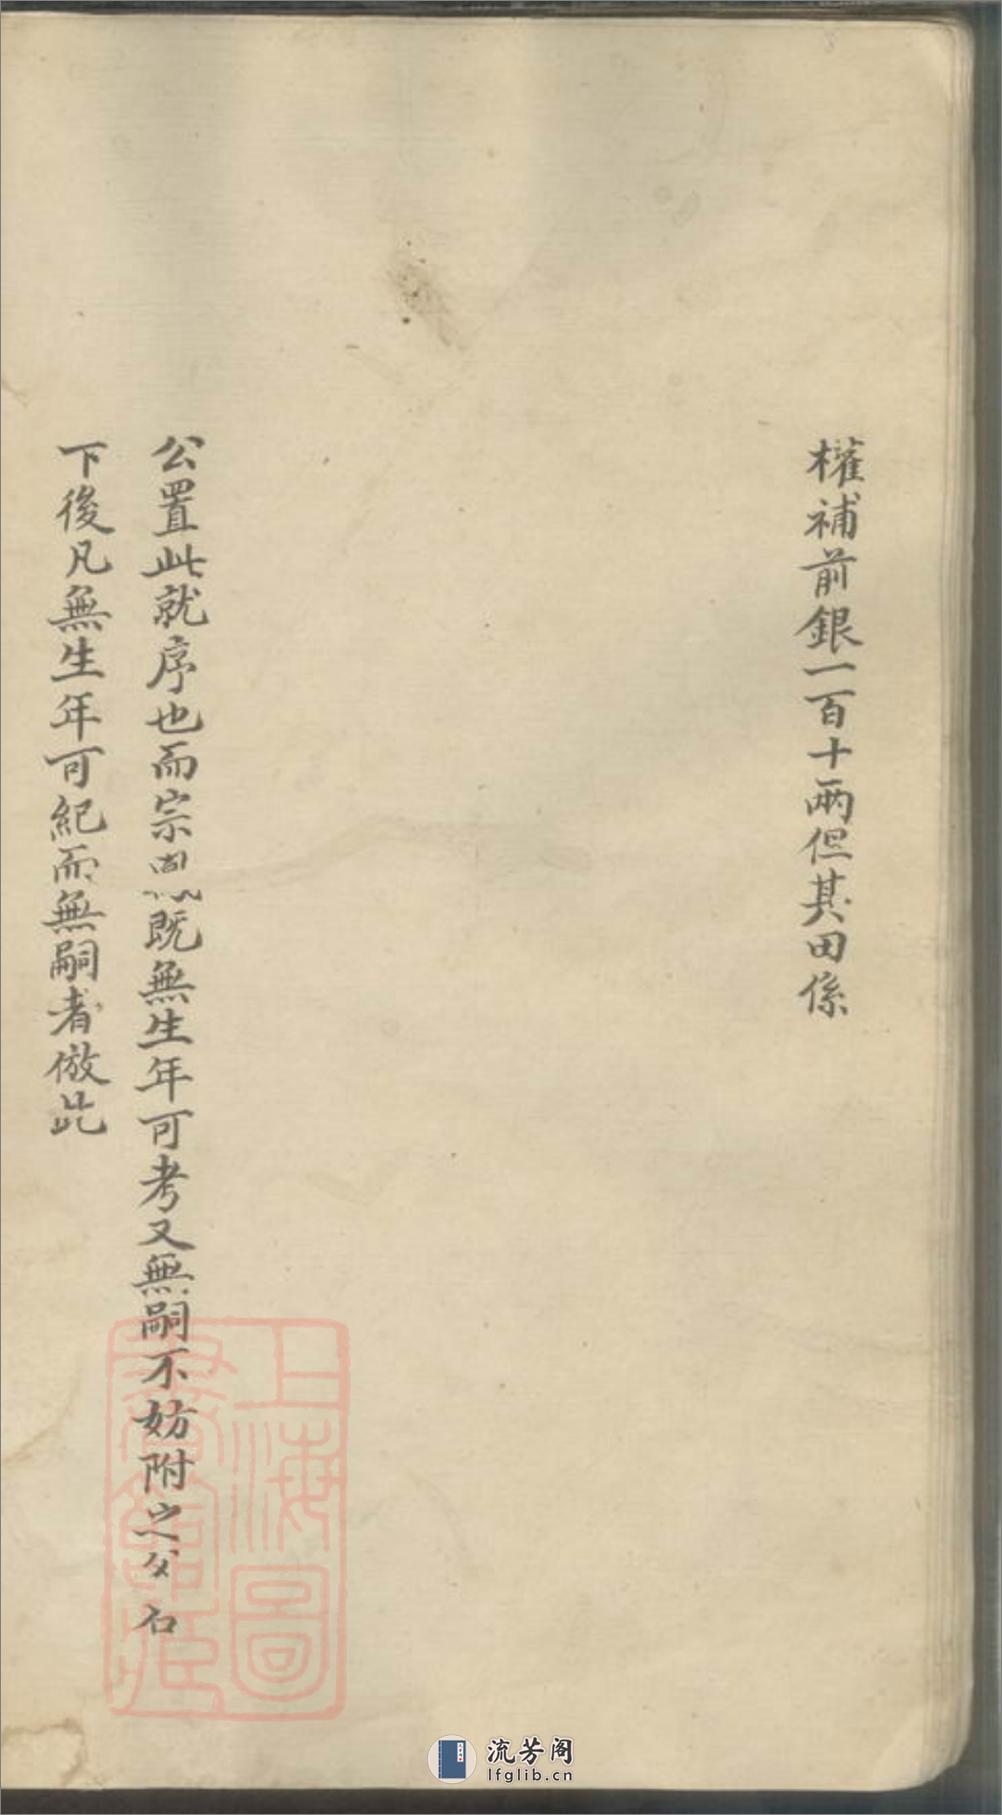 權補前銀一百十兩但其田係
公置此就序也而宗既無生年可考又無嗣不妨附之父名
下後凡無生年可紀而無嗣者倣此
上海圖
書館藏
流芳阁
lfglib.cn